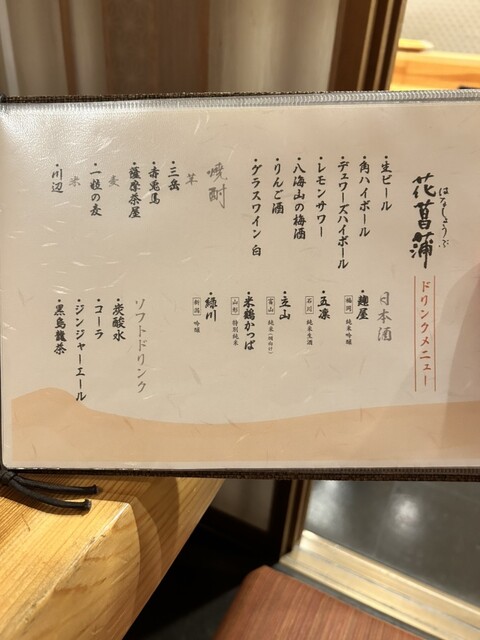 花菖蒲
はなしょうぶ
ドリンクメニュー
・生ビール
・角ハイボール
・デュワーズハイボール
・レモンサワー
・八海山の梅酒
・りんご酒
・グラスワイン 白
焼酎
芋
・三岳
・赤兎馬
・薩摩茶屋
麦
・一粒の麦
米
・川辺
日本酒
・麹屋
福岡 純米吟醸
・五凛
石川 純米生酒
・立山
富山 純米
・米鶴かっぱ
山形 特別純米
・緑川
新潟 吟醸
ソフトドリンク
・炭酸水
・コーラ
・ジンジャーエール
・黒烏龍茶